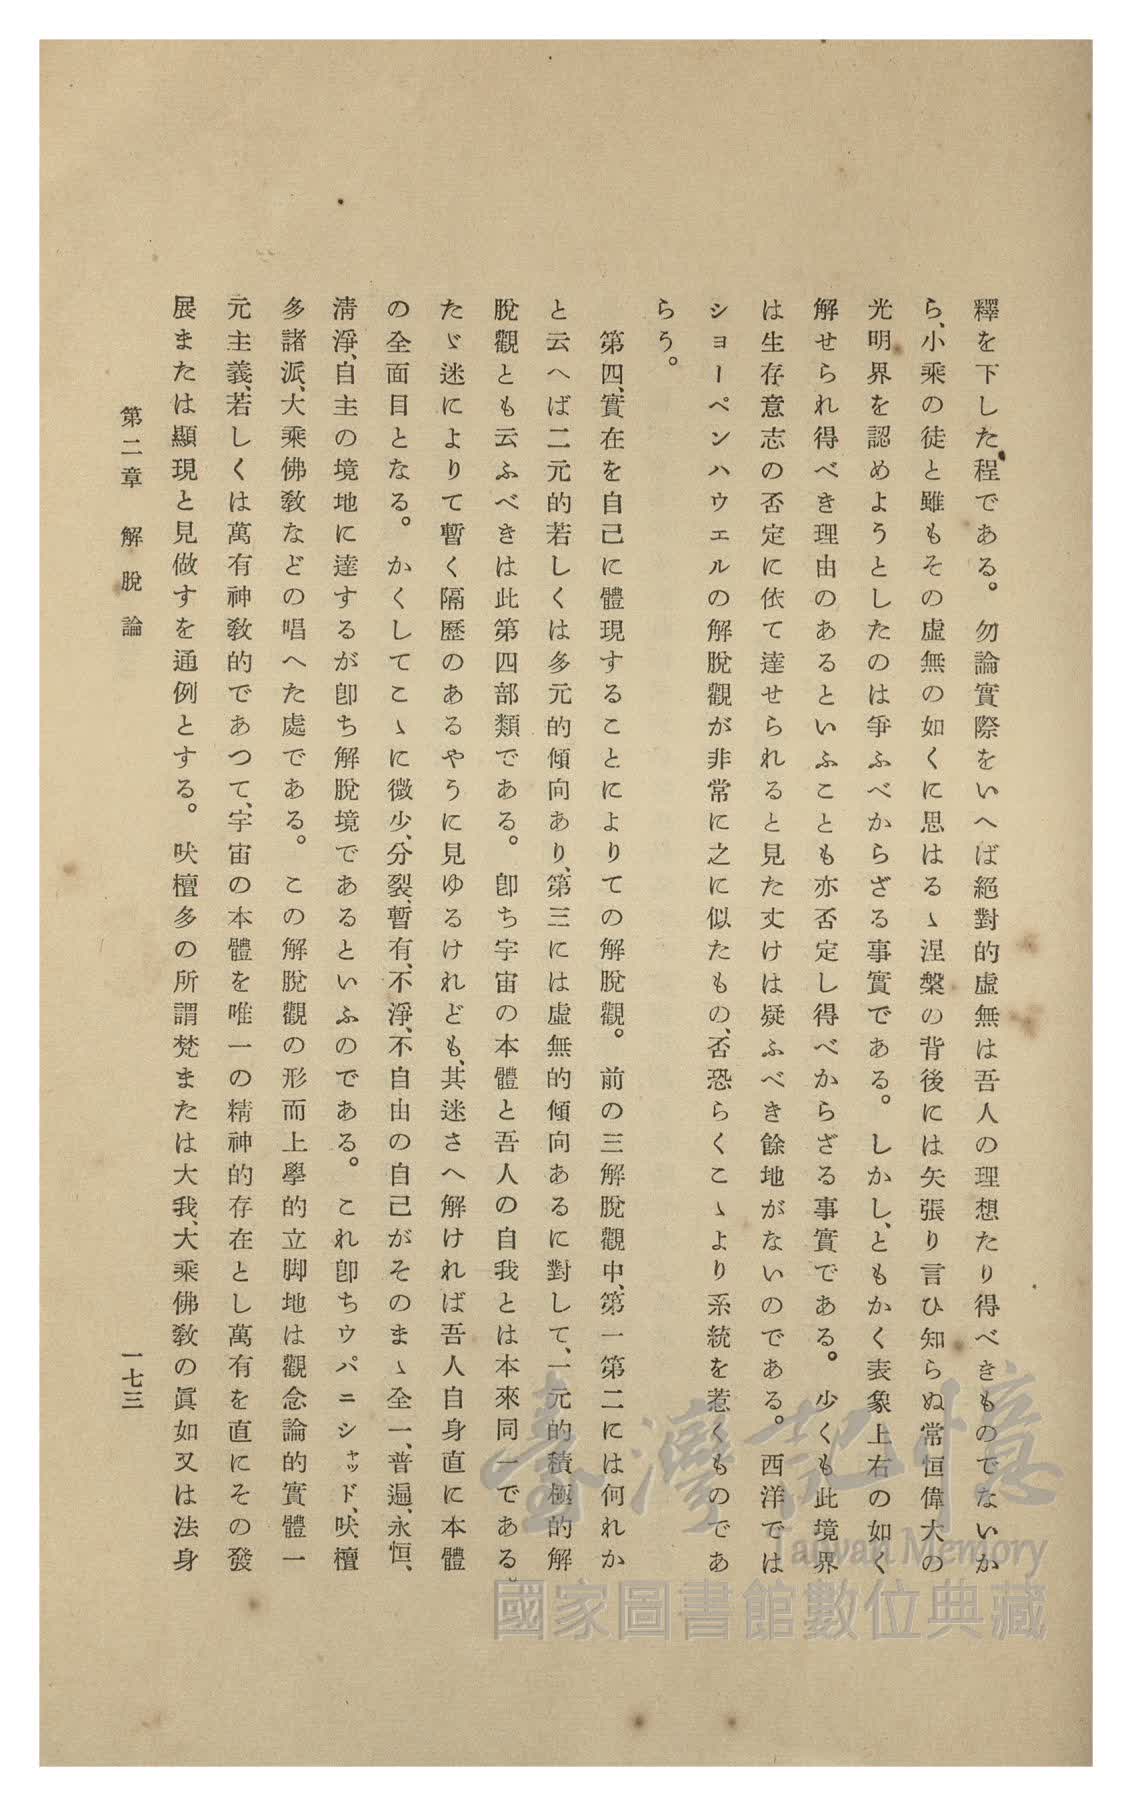 釋を下した程である。勿論實際をいへば絕對的虛無は吾人の理想たり得べきものでないか
ら、小乘の徒と雖もその虛無の如くに思はるゝ涅槃の背後には矢張り言ひ知らぬ常恒偉大の
光明界を認めようとしたのは爭ふべからざる事實である。しかし、ともかく表象上右の如く
解せられ得べき理由のあるといふことも亦否定し得べからざる事實である。少くも此境界
は生存意志の否定に依て達せられると見た丈けは疑ふべき餘地がないのである。西洋では
ショーペンハウエルの解脫觀が非常に之に似たもの、否恐らくこゝより系統を惹くものであ
らう。
第四、實在を自己に體現することによりての解脫觀。前の三解脫觀中、第一第二には何れか
と云へば二元的若しくは多元的傾向あり、第三には虛無的傾向あるに對して、一元的積極的解
脫觀とも云ふべきは此第四部類である。卽ち宇宙の本體と吾人の自我とは本來同一である。
たゞ迷によりて暫く隔歷のあるやうに見ゆるけれども、其迷さへ解ければ吾人自身直に本體
の全面目となる。かくしてこゝに微少、分裂、暫有、不淨、不自由の自己がそのまゝ全一、普遍、永恒、
淸淨、自主の境地に達するが卽ち解脫境であるといふのである。これ卽ちウパニシャッド、吠檀
多諸派、大乘佛敎などの唱へた處である。この解脫觀の形而上學的立脚地は觀念論的實體一
元主義、若しくは萬有神敎的であつて、宇宙の本體を唯一の精神的存在とし萬有を直にその發
展または顯現と見做すを通例とする。吠檀多の所謂梵または大我、大乘佛敎の眞如又は法身
第二章 解脫論
一七三
臺灣記憶
Taiwan Memory
國家圖書館數位典藏